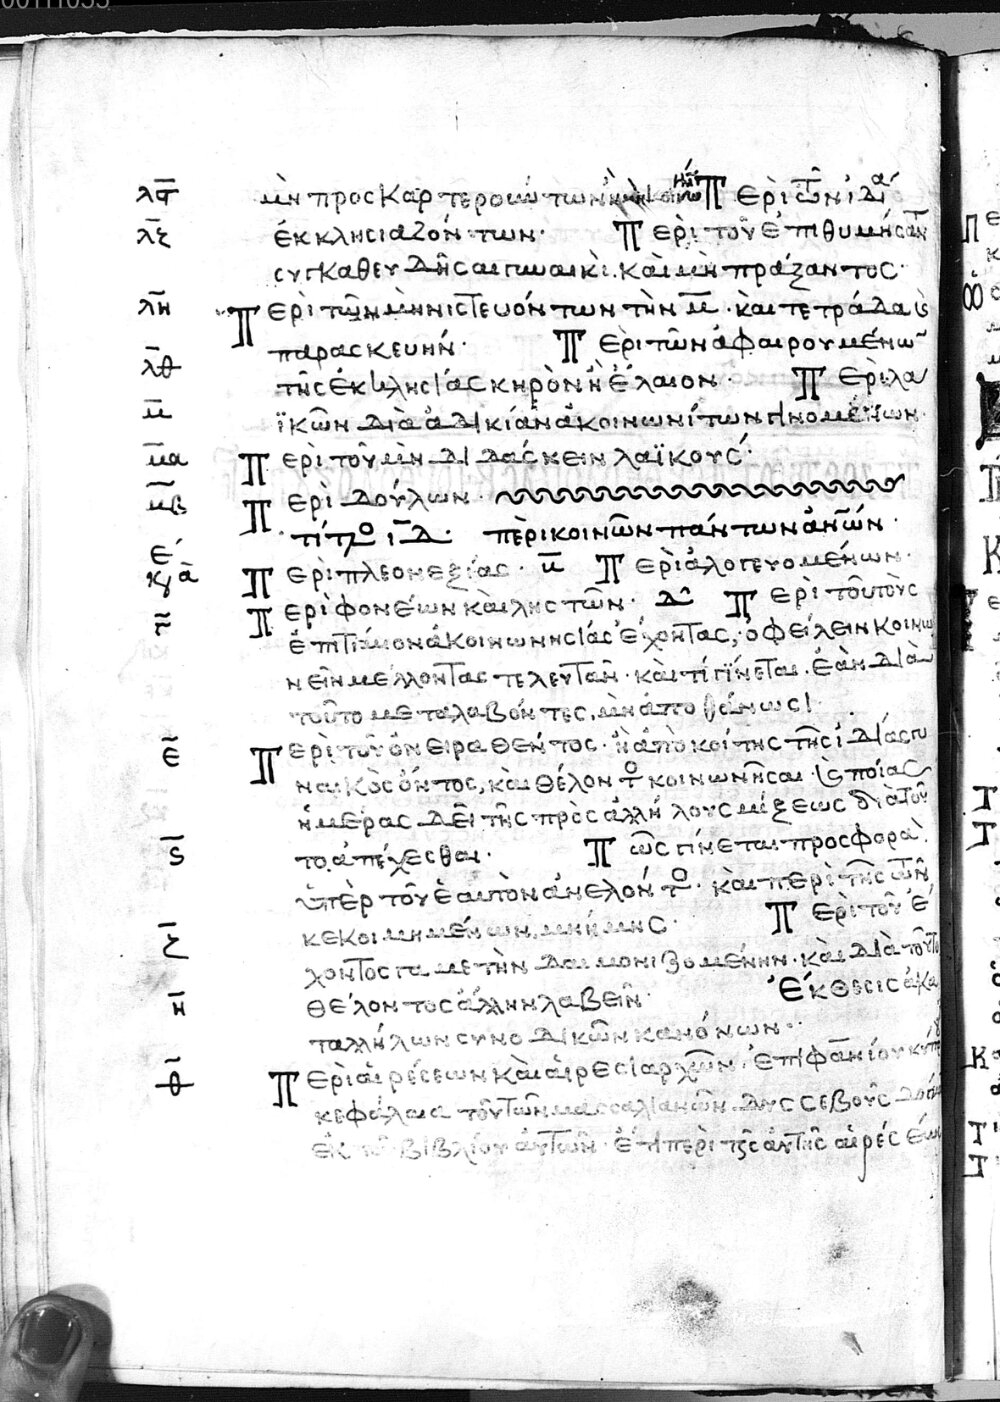 λϛ μὴ προσκαρτερούντων Περὶ τῶν ἰδίᾳ
λζ ἐκκλησιαζόντων· Περὶ τοῦ ἐπιθυμήσαντ
συγκαθευδῆσαι γυναικὶ· καὶ μὴ πράξαντος·
λη Περὶ τῶν μὴ νηστευόντων τὴν μ̅· καὶ τετράδα καὶ
παρασκευήν· Περὶ τῶν ἀφαιρουμένων
λθ τῆς ἐκκλησίας κηρὸν ἢ ἔλαιον· Περὶ λα
μ ϊκῶν διὰ ἀδικίαν ἀκοινωνίτων γινομένων·
μα Περὶ τοῦ μὴ διδάσκειν λαϊκούς·
μβ Περὶ δούλων·
τίτλο ι̅δ· περὶ κοινῶν πάντων ἀνῶν·
Περὶ πλεονεξίας· Περὶ ἁλογευομένων·
Περὶ φονέων καὶ ληστῶν· δ Περὶ τοῦ τοὺς
ἐπιτίμιον ἀκοινωνησίας ἔχοντας, ὀφείλειν κοινω
νεῖν μέλλοντας τελευτᾶν· καὶ τί γίνεται· ἐὰν διὰ
τοῦτο μεταλαβόντες, μὴ ἀποθάνωσι
ε Περὶ τοῦ ὀνειραθέντος· ἢ ἀπὸ κοίτης τῆς ἰδίας γυ
ναικὸς ὄντος, καὶ θέλοντος κοινωνῆσαι· καὶ ποίας
ἡμέρας δεῖ τῆς πρὸς ἀλλήλους μίξεως διὰ τοῦ
ϛ το ἀπέχεσθαι· Πῶς γίνεται προσφορὰ
ὑπὲρ τοῦ ἑαυτὸν ἀνελόντο· καὶ περὶ τῆς τῶν
κεκοιμημένων μνήμης· Περὶ τοῦ ἔ
ζ χοντος γαμετὴν δαιμονιζομένην· καὶ διὰ τοῦτο
θέλοντος ἄλλην λαβεῖν· Ἔκθεσις ἀκα
η ταλλήλων συνοδικῶν κανόνων··
θ Περὶ αἱρέσεων καὶ αἱρεσιαρχῶν· ἐπιφανίου κύπ
κεφάλαια τοῦ τῶν μασσαλιανῶν δυσσεβοῦς
ἐκ τοῦ βιβλίου αὐτῶν· ἔτι περὶ τῆς αὐτῆς αἱρέσεως